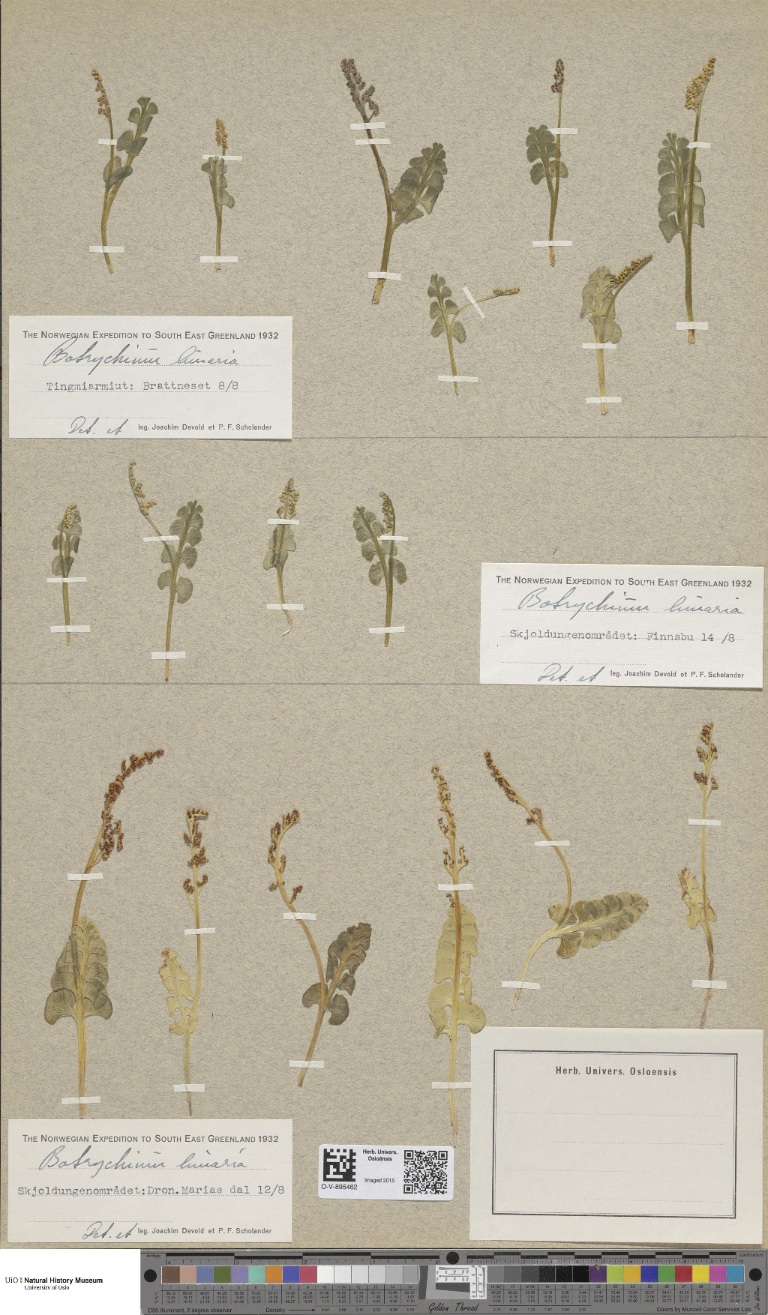 THE NORWEGIAN EXPEDITION TO SOUTH EAST GREENLAND 1932
Botrychium lunaria
Tingmiarmiut: Brattneset 8/8
Det. et leg. Joachim Devold et P. F. Scholander
THE NORWEGIAN EXPEDITION TO SOUTH EAST GREENLAND 1932
Botrychium lunaria
Skjoldungenområdet: Finnsbu 14 /8
Det. et leg. Joachim Devold et P. F. Scholander
Herb. Univers. Osloensis
THE NORWEGIAN EXPEDITION TO SOUTH EAST GREENLAND 1932
Botrychium lunaria
Skjoldungenområdet:Dron.Marias dal 12/8
Det. et leg. Joachim Devold et P. F. Scholander
Herb. Univers.
Osloënsis
Imaged 2015
O-V-895462
UiO Natural History Museum
University of Oslo
D50 Illuminant, 2 degree observer
Density
Golden Thread
Colors by Munsell Color Services Lab